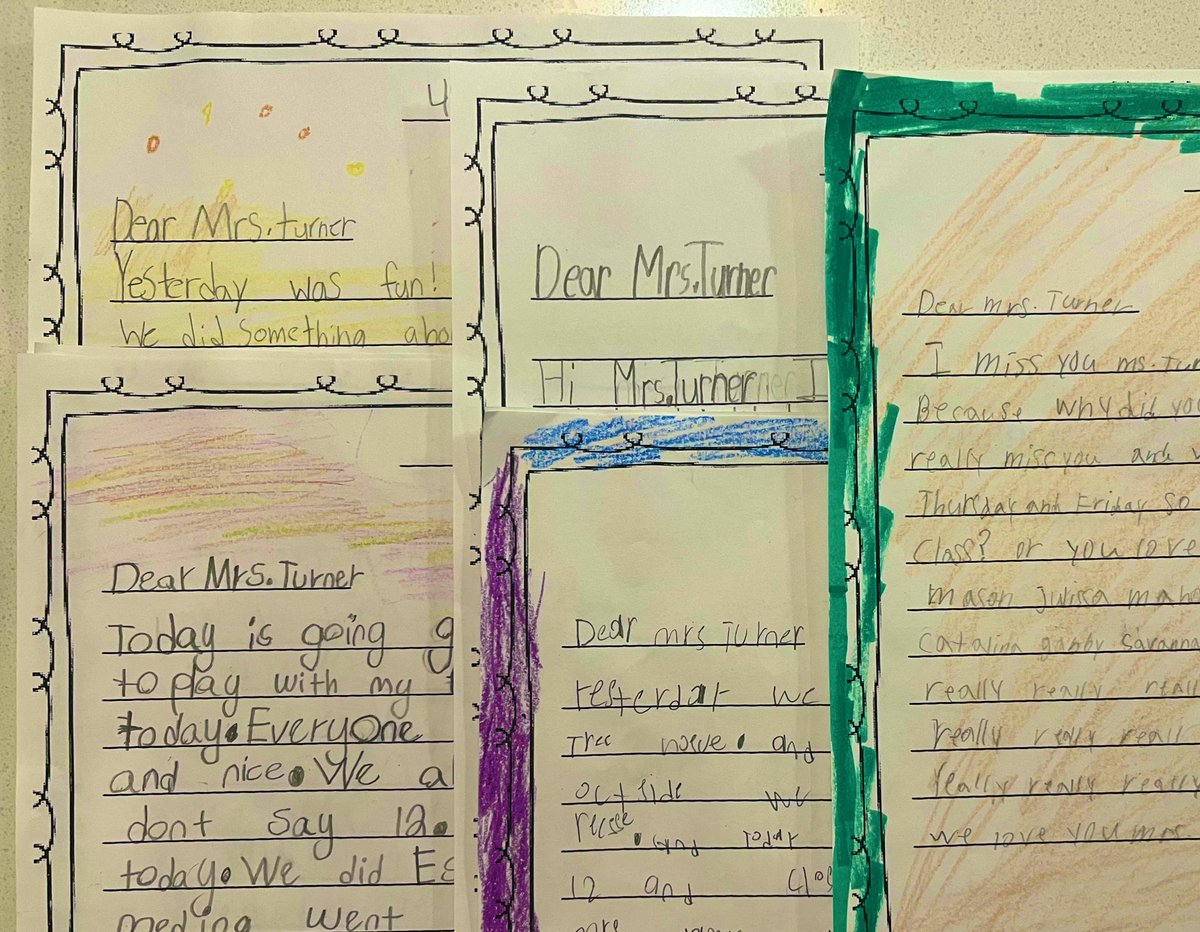 4
Dear Mrs. turner
Yesterday was fun!
We did something abo
Dear Mrs. Turner
Hi Mrs. Turner I
Dear mrs. Turner
I miss you ms. Tur
Because why did you
really miss you and
Thursday and Friday so
Class? or you love
mason Julissa
Catalina Savanna
really really reall
really really reall
really really really
we love you mrs
Dear Mrs. Turner
Today is going g
to play with my
today. Everyone
and nice. We al
dont Say 12.
today. We did Es
meding went
Dear mrs Turner
Yesterday we
Tree and
outside we
recsse
. and today
12 and Clos